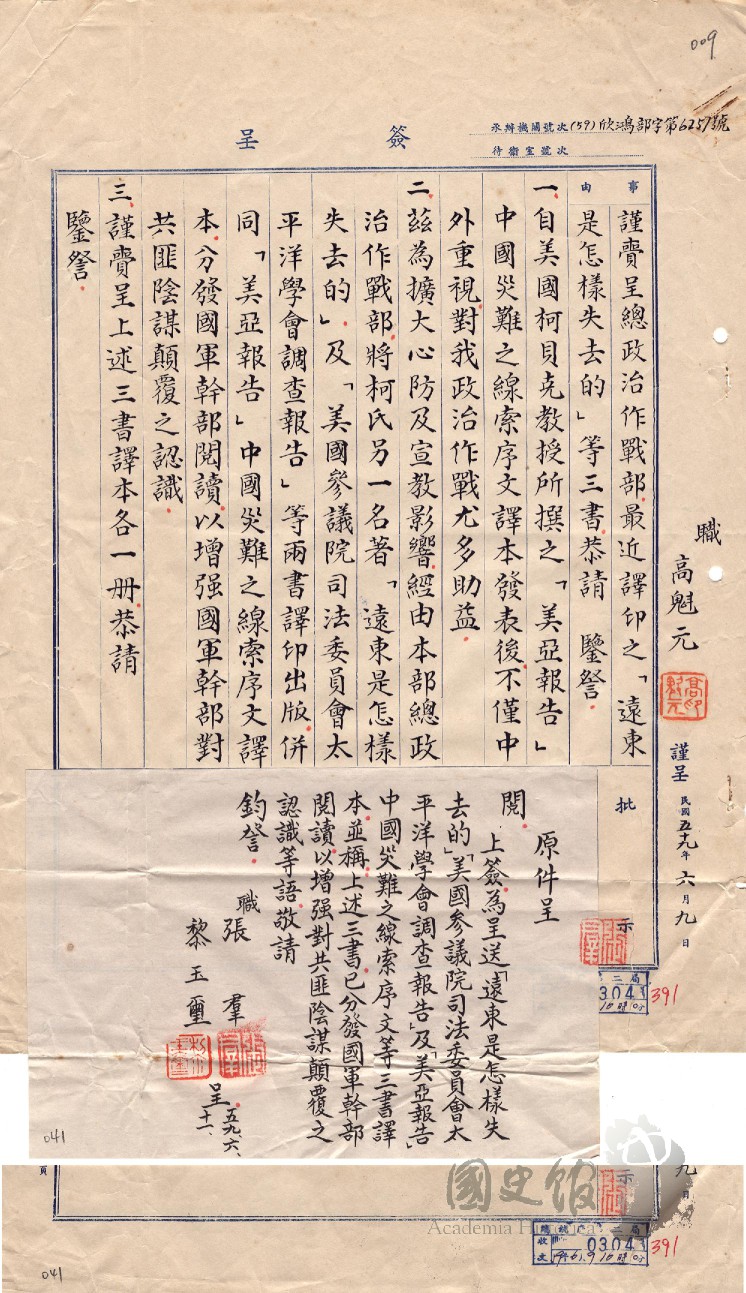 009
簽呈
承辦機關號次(59)欣鴻部字第6257號
待衛室號次
事由
謹賷呈總政治作戰部最近譯印之「遠東
是怎樣失去的」等三書恭請 鑒詧
一、自美國柯貝克教授所撰之「美亞報告」
中國災難之線索序文譯本發表後不僅中
外重視對我政治作戰尤多助益
二、茲為擴大心防及宣教影響經由本部總政
治作戰部將柯氏另一名著「遠東是怎樣
失去的」及「美國參議院司法委員會太
平洋學會調查報告」等兩書譯印出版併
同「美亞報告」中國災難之線索序文譯
本分發國軍幹部閱讀以增强國軍幹部對
共匪陰謀顛覆之認識
三、謹賷呈上述三書譯本各一册恭請
鑒詧
職
高魁元
謹呈 民國五十九年六月九日
批示
原件呈
閱
上簽為呈送「遠東是怎樣失
去的」「美國參議院司法委員會太
平洋學會調查報告」及「美亞報告」
中國災難之線索序文等三書譯
本並稱上述三書已分發國軍幹部
閱讀以增强對共匪陰謀顛覆之
認識等語敬請
鈞詧
職 張羣
黎玉璽
呈 五九、六、十一、
041
二局
304
391
示
九日
頁
國史館
Academia Historica
總統府二局
收文
0304
391
041